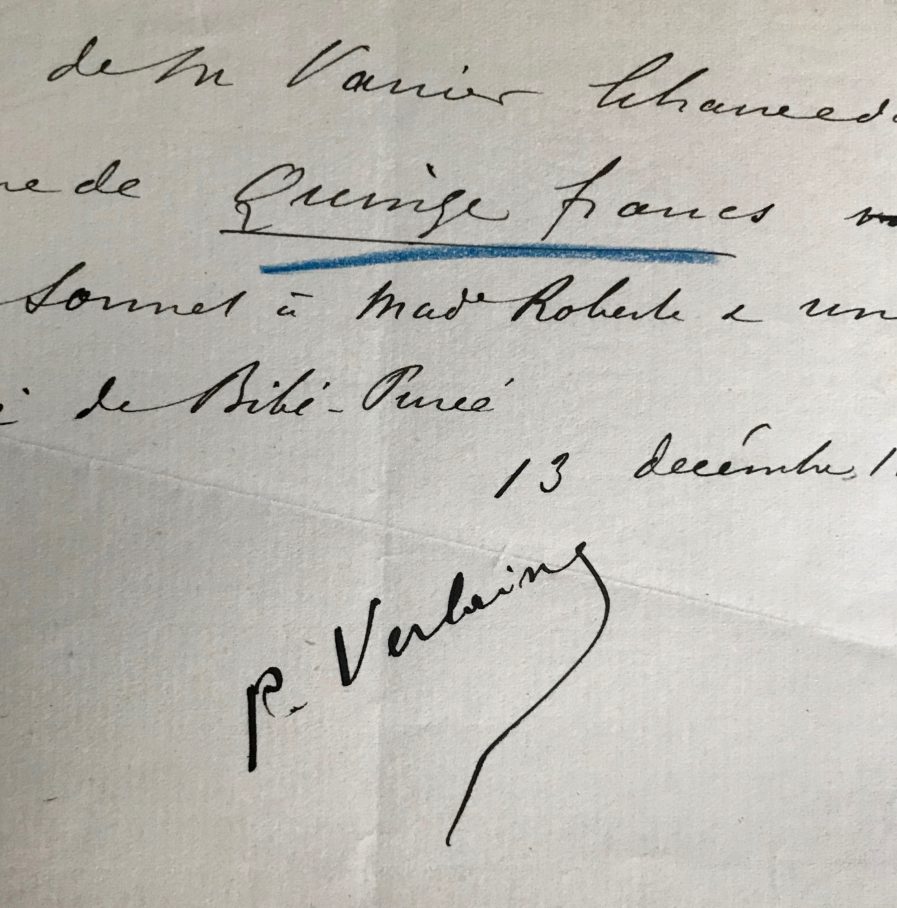 de M Vanier la somme de
Quinze francs
Sonnet à Made Roberte & un
i de Bibi-Purée
13 décembre, 1
P. Verlaine